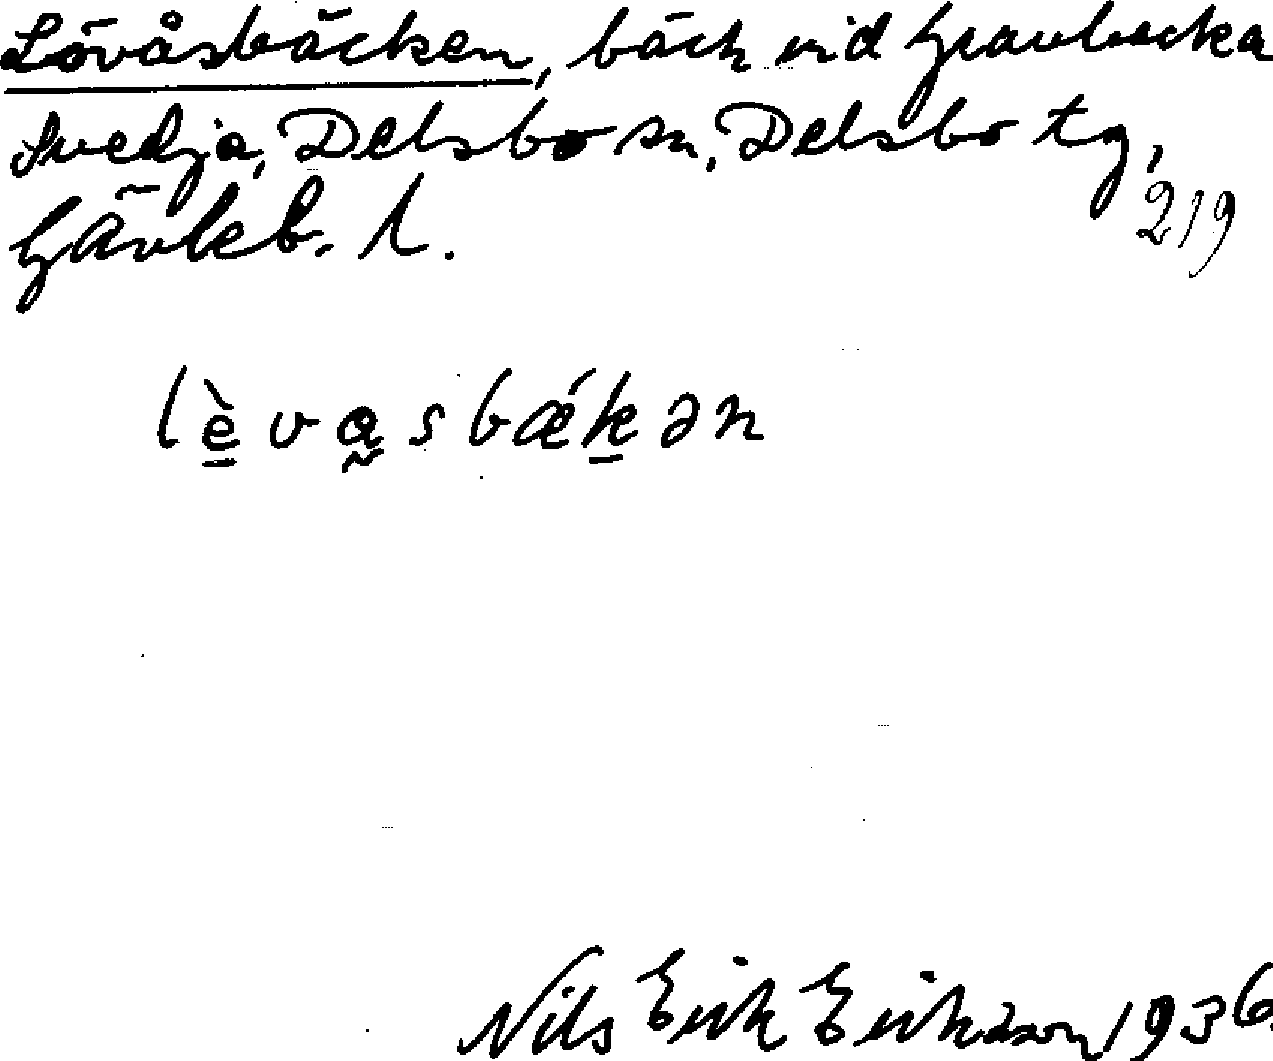 Lövåsbäcken, bäck vid Gravbecka
Svedja, Delsbo sn, Delsbo tg,
Gävleb. l.
219
lè̱va̰sbǽḵən
Nils Erik Eriksson 1936